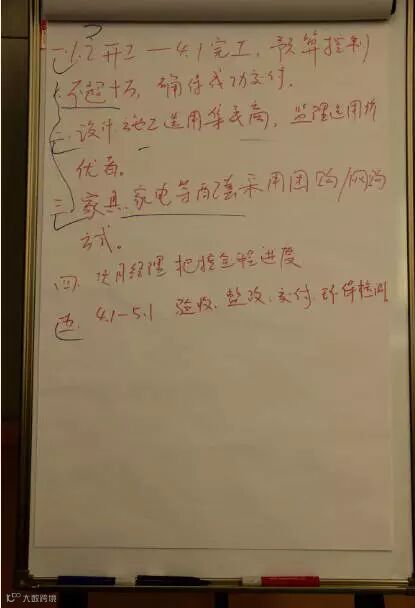 一、1.2开工—4.1完工，预算控制
不超十万，确保成功交付。
二、设计施工选用集成商，监理选用价
优者。
三、家具、家电等配套采用团购/网购
方式。
四、项目经理把控全程进度
五、4.1-5.1 验收、整改、交付、环保检测
大数跨境